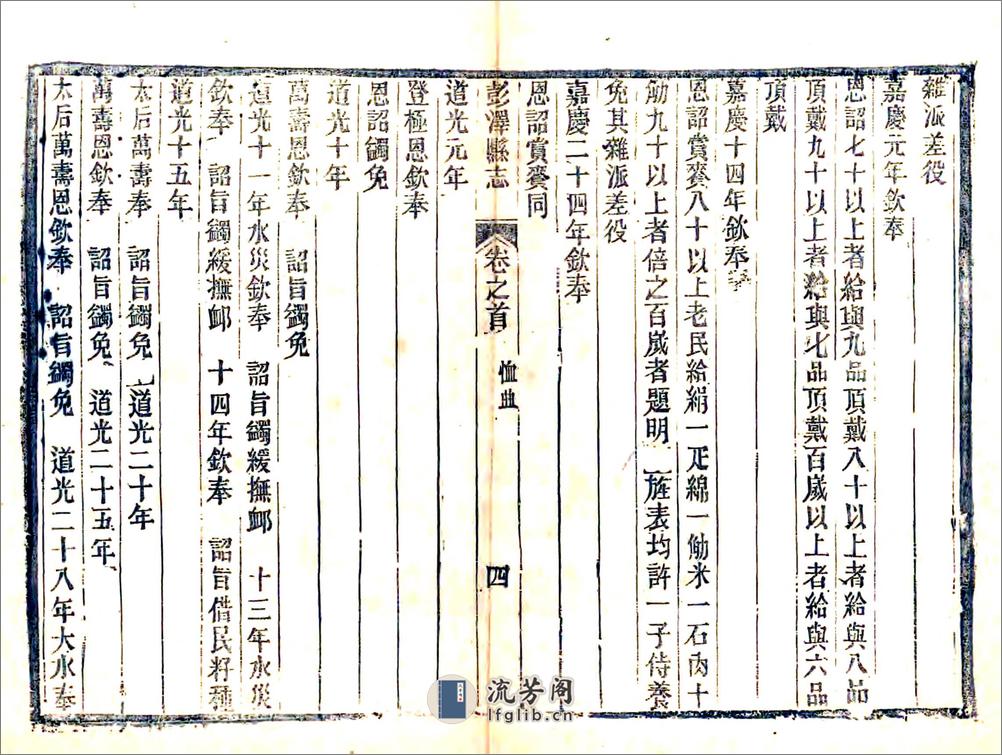 雜派差役
嘉慶元年欽奉
恩詔七十以上者給與九品頂戴八十以上者給與八品
頂戴九十以上者給與七品頂戴百歲以上者給與六品
頂戴
嘉慶十四年欽奉
恩詔賞賚八十以上老民給絹一疋綿一觔米一石肉十
觔九十以上者倍之百歲者題明 旌表均許一子侍養
免其雜派差役
嘉慶二十四年欽奉
恩詔賞賚同
彭澤縣志 卷之首 恤典 四
道光元年
登極恩欽奉
恩詔蠲免
道光十年
萬壽恩欽奉 詔旨蠲免
道光十一年水災欽奉 詔旨蠲緩撫䘏 十三年水災
欽奉 詔旨蠲緩撫䘏 十四年欽奉 詔旨借民籽種
道光十五年
太后萬壽奉 詔旨蠲免 道光二十年
萬壽恩欽奉 詔旨蠲免 道光二十五年
太后萬壽恩欽奉 詔旨蠲免 道光二十八年大水奉
流芳閣
lfglib.cn